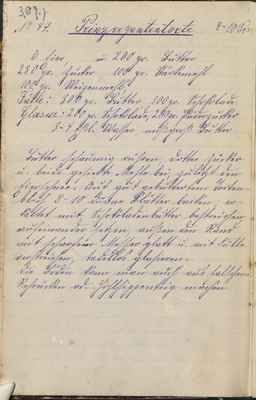 307.)
No 44. Prinzregententorte 8-10 Pers
6 Eier, u 200 gr. Butter
250 gr. Zucker 100 gr. Stärkemehl
100 gr. Weizenmehl
Fülle: 300 gr. Butter, 300 gr. Schokolade
Glasur: 200 gr. Schokolade, 200 gr. Puderzucker
3-4 Eßl. Wasser nußgroß Butter
Butter schaumig rühren, dotter Zucker
u. beide gesiebte Mehle bei zuletzt den
Eierschnee. Auf gut gebuttertem Torten-
blech 8-10 dünne Blätter backen, er-
kaltet mit Schokoladenbutter bestreichen,
aufeinander setzen, außen den Rand
mit scharfem Messer glatt u. mit Fülle
verstreichen, tadellos glasieren.
Die Böden kann man auch aus falschem
Schnitten od. Hohlhippenteig machen